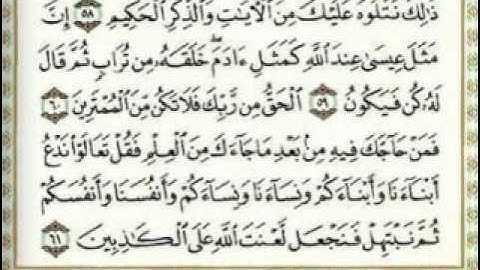 ذَٰلِكَ نَتْلُوهُ عَلَيْكَ مِنَ ٱلْأَيَٰتِ وَٱلذِّكْرِ ٱلْحَكِيمِ ٥٨ إِنَّ
مَثَلَ عِيسَىٰ عِندَ ٱللَّهِ كَمَثَلِ ءَادَمَ ۖ خَلَقَهُۥ مِن تُرَابٍ ثُمَّ قَالَ
لَهُۥ كُن فَيَكُونُ ٥٩ ٱلْحَقُّ مِن رَّبِّكَ فَلَا تَكُن مِّنَ ٱلْمُمْتَرِينَ ٦٠
فَمَنْ حَآجَّكَ فِيهِ مِنۢ بَعْدِ مَا جَآءَكَ مِنَ ٱلْعِلْمِ فَقُلْ تَعَالَوْا۟ نَدْعُ
أَبْنَآءَنَا وَأَبْنَآءَكُمْ وَنِسَآءَنَا وَنِسَآءَكُمْ وَأَنفُسَنَا وَأَنفُسَكُمْ
ثُمَّ نَبْتَهِلْ فَنَجْعَل لَّعْنَتَ ٱللَّهِ عَلَى ٱلْكَٰذِبِينَ ٦١